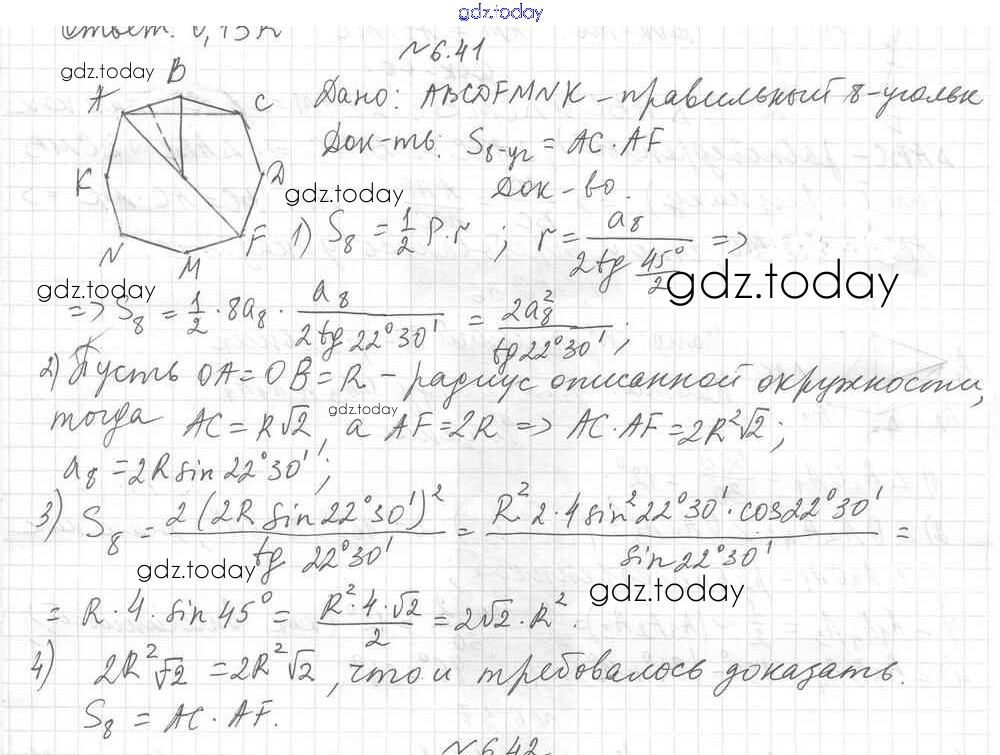 gdz.today
Ответ: 0,
№6.41
gdz.today
Дано: ABCDFMNK – правильный 8-угольк
Док-ть: S₈₋уг = AC · AF
Док-во.
gdz.today
A B C D F M N K
1) S₈ = 1/2 P·r ; r = a₈ / (2 tg 45°/2) =>
gdz.today
gdz.today
=> S₈ = 1/2 · 8a₈ · a₈ / (2 tg 22°30') = 2a₈² / (tg 22°30') ;
2) Пусть OA = OB = R – радиус описанной окружности,
gdz.today
тогда AC = R√2, а AF = 2R => AC·AF = 2R²√2;
a₈ = 2R sin 22°30';
3) S₈ = 2(2R sin 22°30')² / (tg 22°30') = R² 2·4 sin² 22°30' · cos 22°30' / (sin 22°30') =
gdz.today
gdz.today
= R · 4 · sin 45° = R²·4·√2 / 2 = 2√2 · R².
4) 2R²√2 = 2R²√2, что и требовалось доказать.
S₈ = AC · AF.
№6.42.